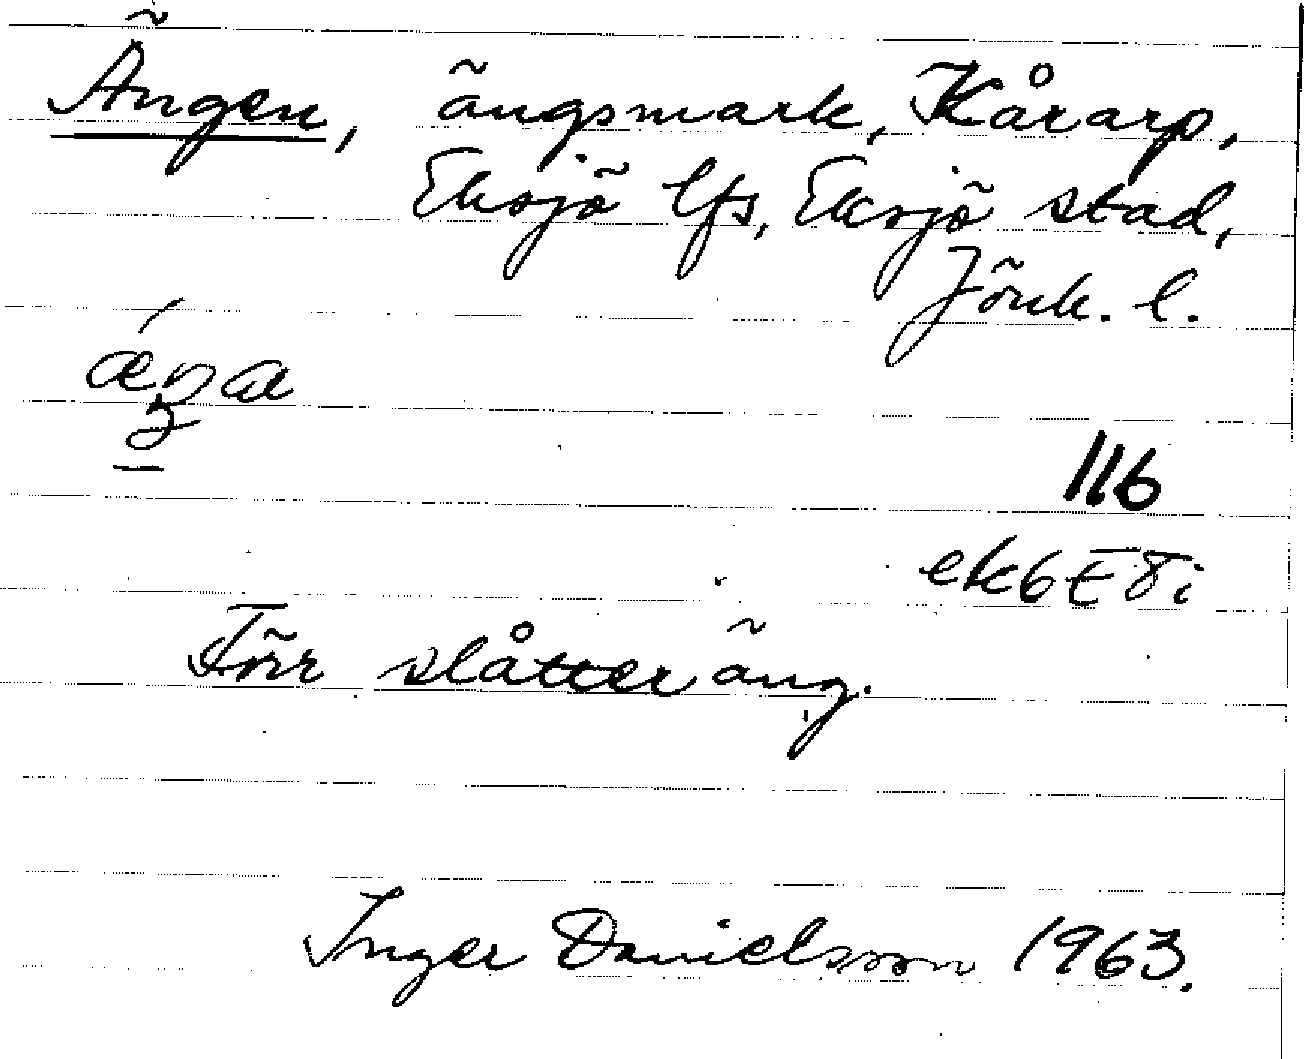 Ängen, ängsmark, Kårarp,
Eksjö lfs, Eksjö stad,
Jönk. l.
116
ek 6E8i
Förr slåtteräng.
Inger Danielsson 1963.